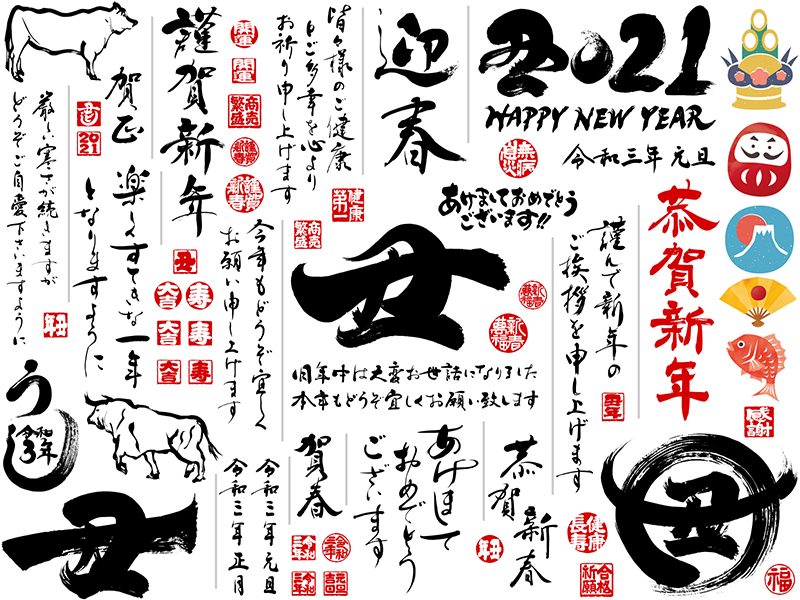 開運
開運
商売繁盛
謹賀新春
謹賀新年
賀正
丑
2021
厳しい寒さが続きますが
どうぞご自愛下さいますように
丑年
楽しくすてきな一年
となりますように
皆々様のご健康
とご多幸を心より
お祈り申し上げます
健康第一
商売繁盛
迎春
丑2021
HAPPY NEW YEAR
無病息災
令和三年 元旦
あけましておめでとう
ございます!!
恭賀新年
謹んで新年の
ご挨拶を申し上げます
丑年
感謝
今年もどうぞ宜しく
お願い申し上げます
丑
大吉
寿
大吉
寿
大吉
寿
丑
新春萬福
新春萬福
旧年中は大変お世話になりました
本年もどうぞ宜しくお願い致します
うし
令和3年
丑
令和三年 元旦
令和三年 正月
賀春
令和三年
令和三年
元旦吉日
あけまして
おめでとう
ございます
恭賀
新春
丑年
健康長寿
合格祈願
丑
福